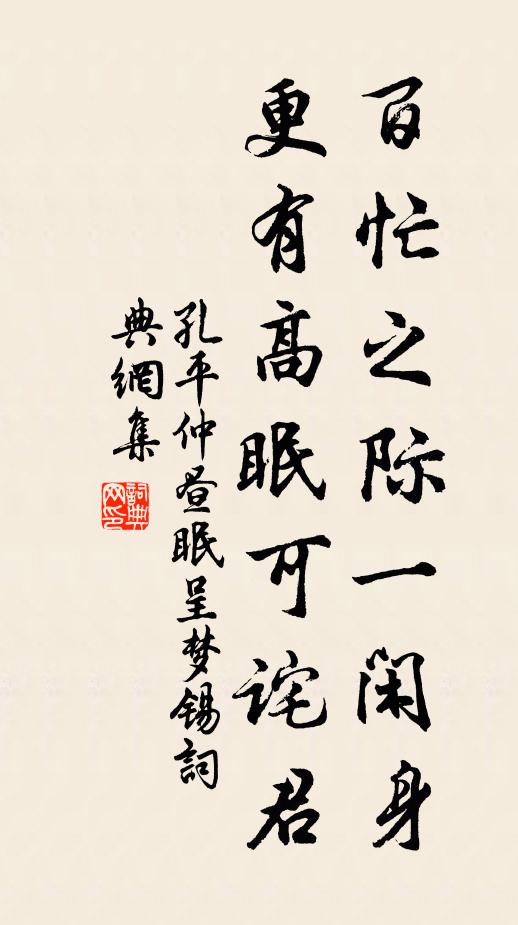 百忙之际一闲身
更有高眠可诧君
孔平仲昼眠呈梦锡詞
典網集
詞典
网印